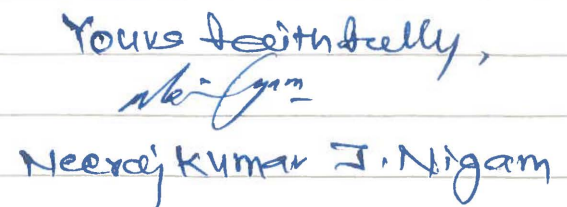 Yours faithfully,
Neeraj Kumar J. Nigam